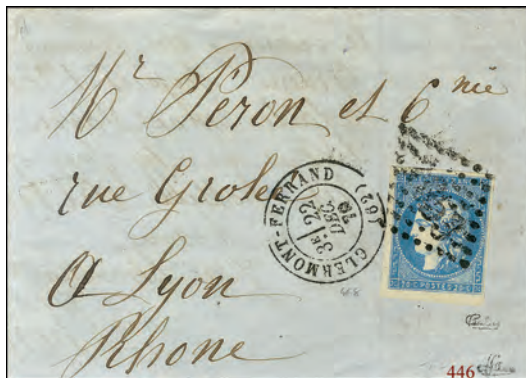 Mr Peron et Cnie
rue Grolée
A Lyon
Rhone
CLERMONT-FERRAND (62)
3E
22
DEC
70
20 c POSTES 20 c
446